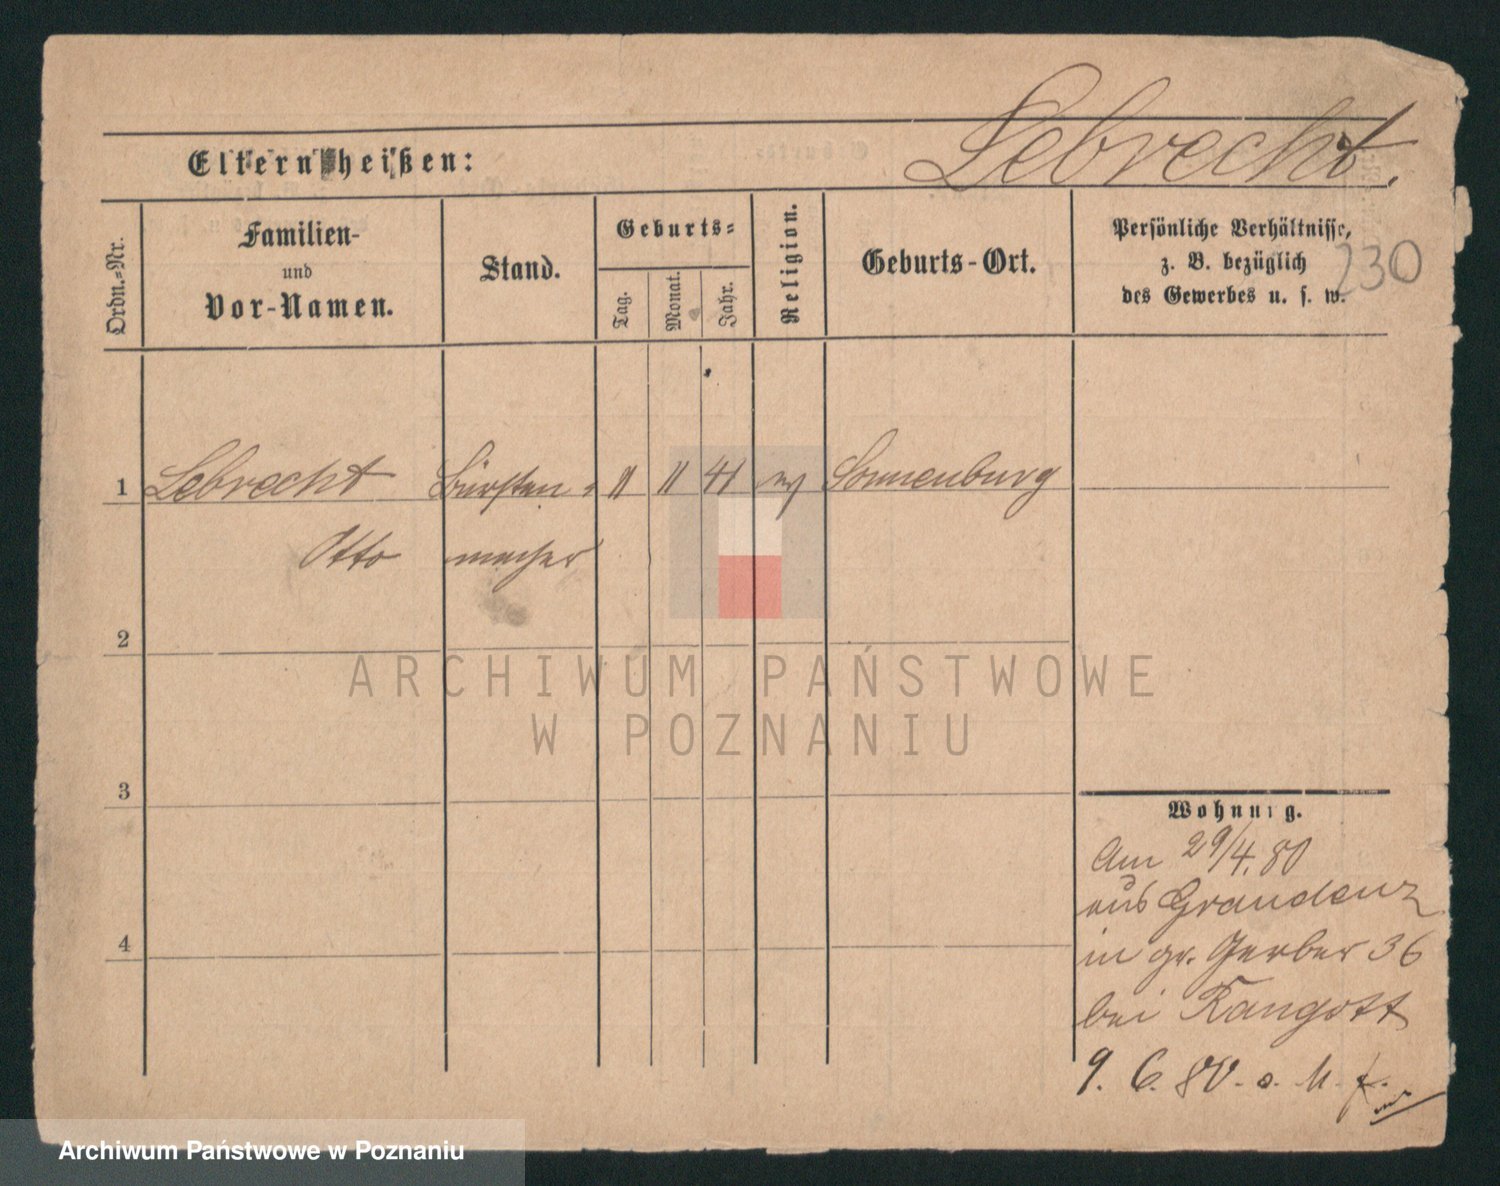 Lebrecht.
Eltern heißen:
Ordn.=Nr.
Familien-
und
Vor-Namen.
Stand.
Geburts=
Tag.
Monat.
Jahr.
Religion.
Geburts-Ort.
Persönliche Verhältnisse,
z. B. bezüglich
des Gewerbes u. s. w.
230
1 Lebrecht Bürsten= 11 11 41 ev Sonnenburg
Otto macher
2
3
4
Wohnung.
Am 29/4. 80
aus Graudenz
in gr. Gerber 36
bei Rangott
9. 6. 80. o.
ARCHIWUM PAŃSTWOWE
W POZNANIU
Archiwum Państwowe w Poznaniu